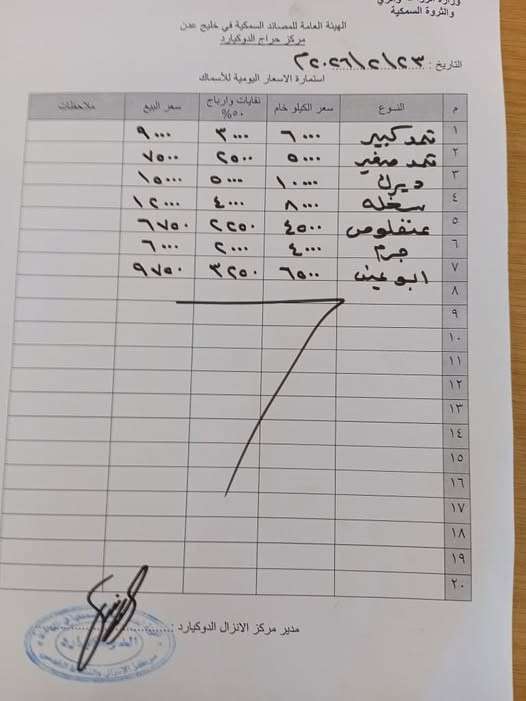 والثروة السمكية
الهيئة العامة للمصائد السمكية في خليج عدن
مركز حراج الدوكيارد
التاريخ : ٢٠٢٦/٢/٢٣م
استمارة الاسعار اليومية للأسماك
م النوع سعر الكيلو خام نفايات وارباح ٥٠% سعر البيع ملاحظات
١ ثمد كبير ٦٠٠٠ ٣٠٠٠ ٩٠٠٠
٢ ثمد صغير ٥٠٠٠ ٢٥٠٠ ٧٥٠٠
٣ ديرك ١٠٠٠٠ ٥٠٠٠ ١٥٠٠٠
٤ سخله ٨٠٠٠ ٤٠٠٠ ١٢٠٠٠
٥ عنفلوص ٤٥٠٠ ٢٢٥٠ ٦٧٥٠
٦ جرم ٤٠٠٠ ٢٠٠٠ ٦٠٠٠
٧ ابو عين ٦٥٠٠ ٣٢٥٠ ٩٧٥٠
٨
٩
١٠
١١
١٢
١٣
١٤
١٥
١٦
١٧
١٨
١٩
٢٠
مدير مركز الانزال الدوكيارد :